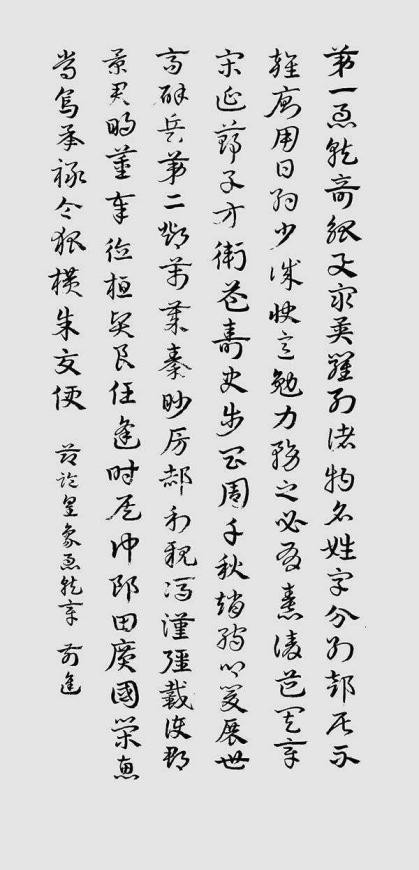 第一急就奇觚與眾異羅列諸物名姓字分別部居不
雜廁用日約少誠快意勉力務之必有憙請道其章
宋延鄭子方衛益壽史步昌周千秋趙孺卿爰展世
高辟兵第二鄧萬歲秦眇房郝利親馮漢彊戴護郡
景君明董奉德桓賢良任逢時侯仲郎田廣國榮惠
常烏承祿令狐橫朱交便
節臨皇象急就章 前進